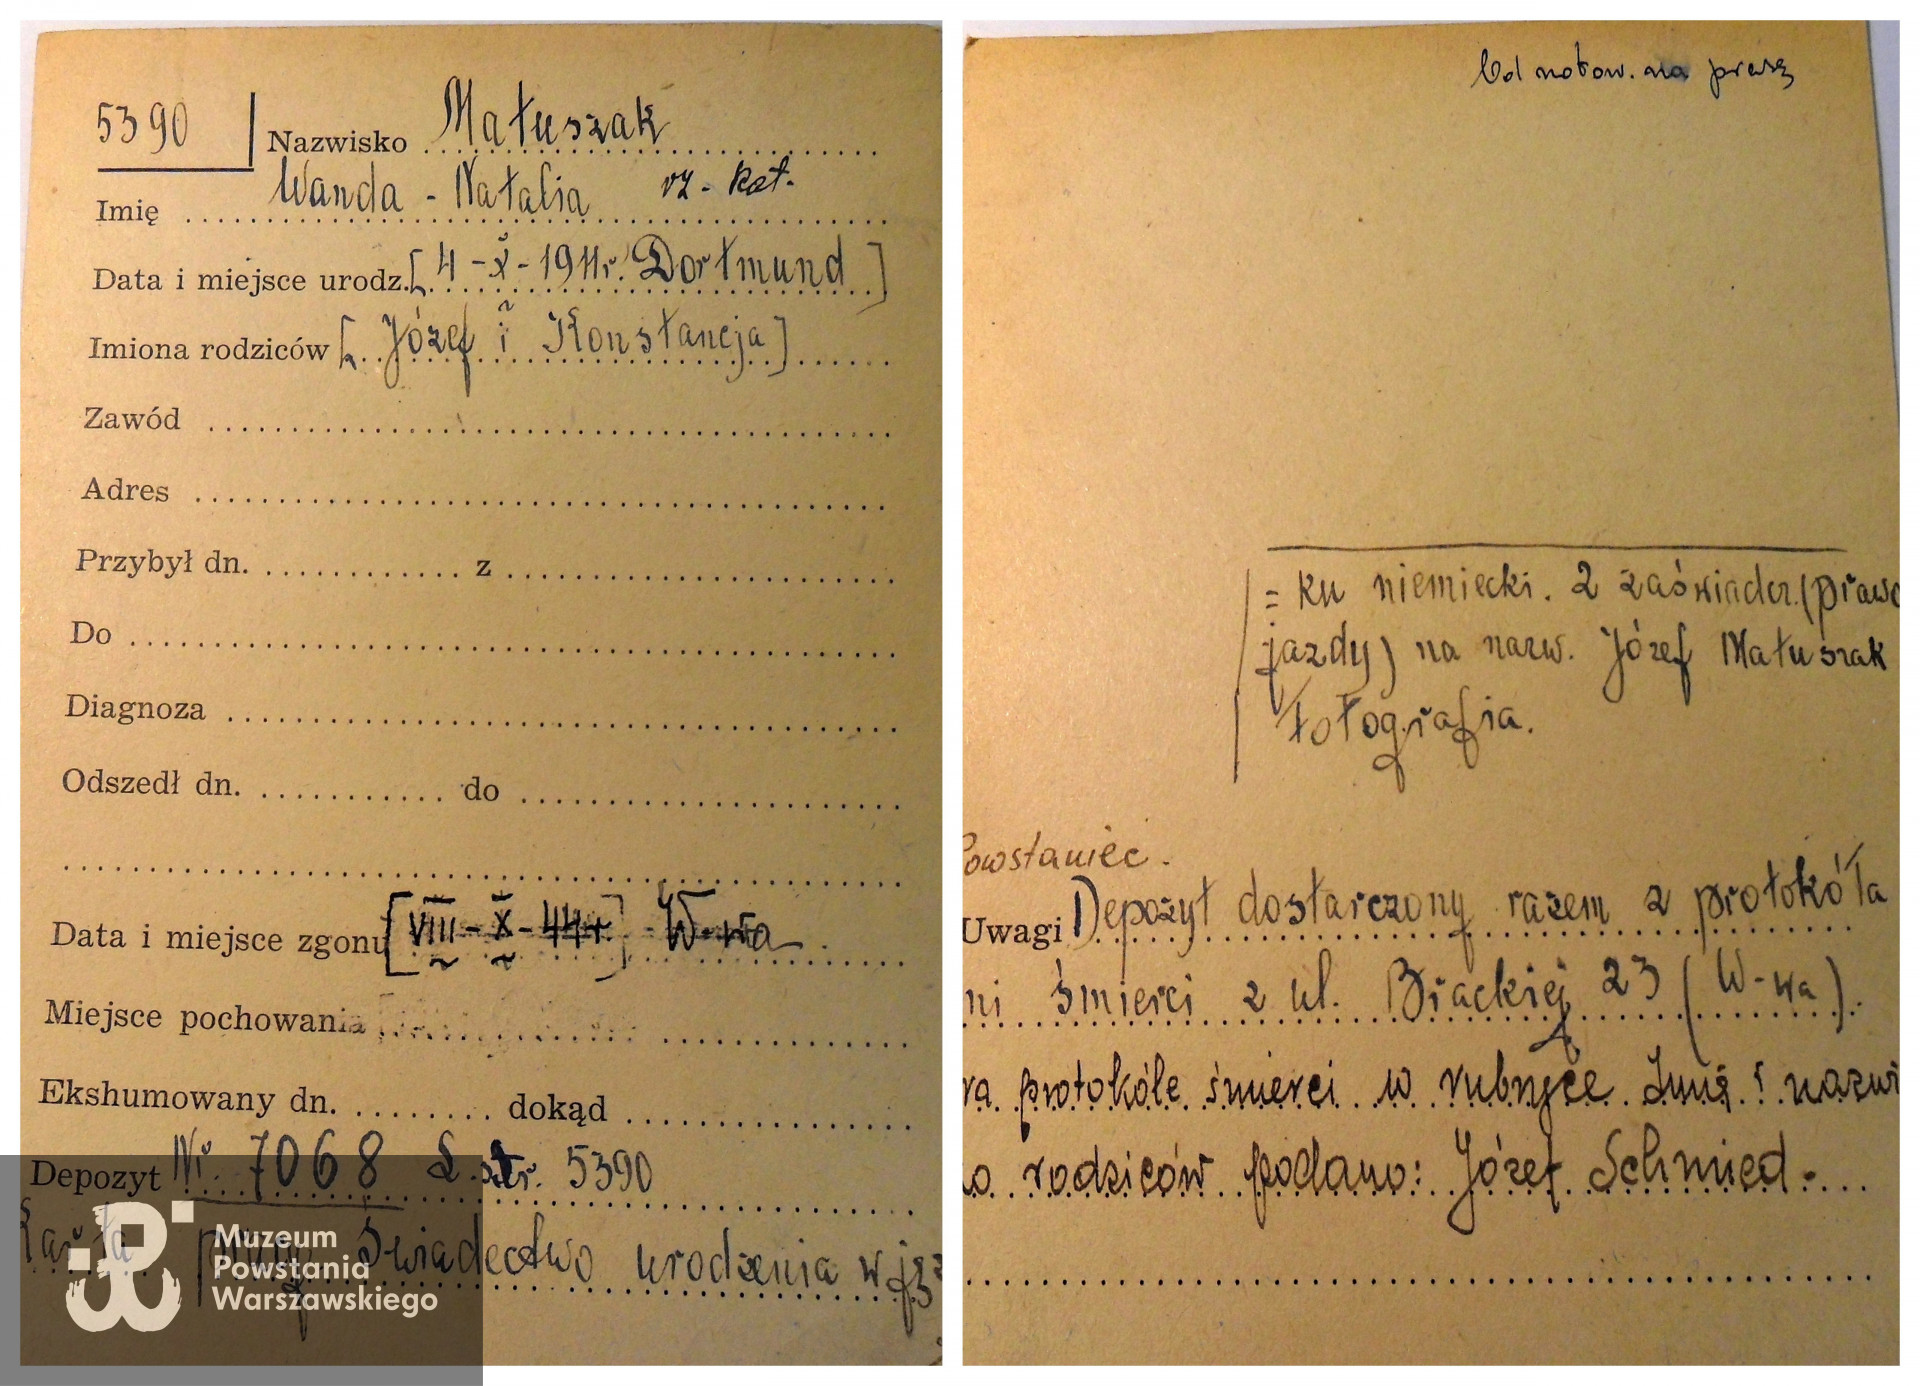 5390
Nazwisko Matuszak
Imię Wanda - Natalia rz - kat.
Data i miejsce urodz. [4 - X - 1911r. Dortmund]
Imiona rodziców [Józef i Konstancja]
Zawód
Adres
Przybył dn. z
Do
Diagnoza
Odszedł dn. do
Data i miejsce zgonu [VIII - X - 44r] W-wa
Miejsce pochowania
Ekshumowany dn. dokąd
Depozyt Nr. 7068 L. str. 5390
Karta pracy świadectwo urodzenia w ję
Muzeum
Powstania
Warszawskiego
Odnotow. na prasę
= ku niemiecki. 2 zaświadcz. (prawo
jazdy) na nazw. Józef Matuszak
fotografia.
Powstaniec.
Uwagi Depozyt dostarczony razem z protokóła
mi śmierci z ul. Brackiej 23 (W-wa).
na protokóle śmierci w rubryce Imię i nazwi
ko rodziców podano: Józef Schmied.